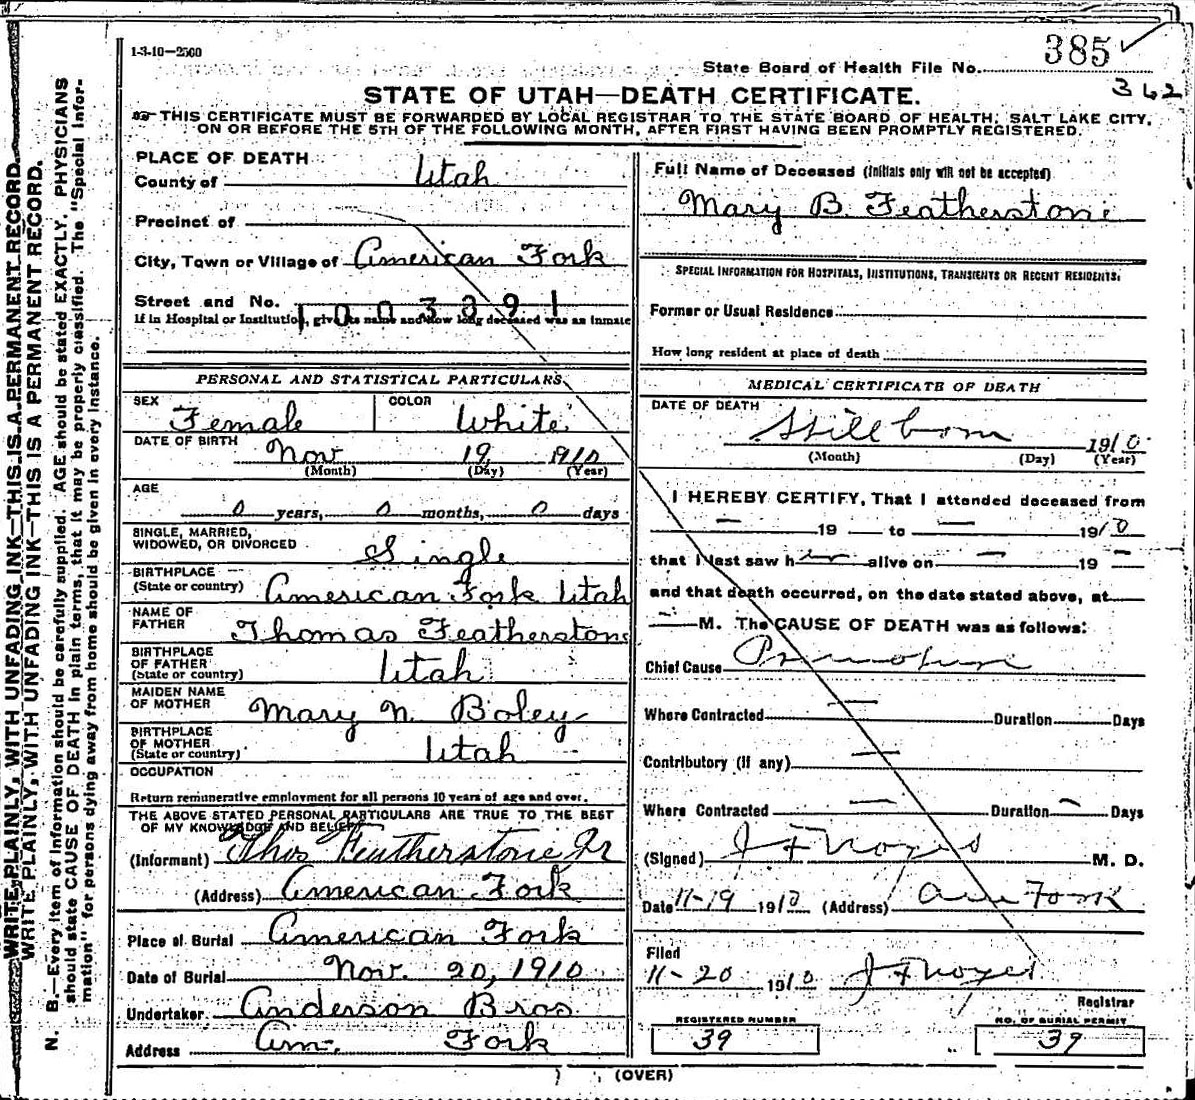 1-3-10—2500
State Board of Health File No. 385
362
STATE OF UTAH—DEATH CERTIFICATE.
THIS CERTIFICATE MUST BE FORWARDED BY LOCAL REGISTRAR TO THE STATE BOARD OF HEALTH, SALT LAKE CITY,
ON OR BEFORE THE 5TH OF THE FOLLOWING MONTH, AFTER FIRST HAVING BEEN PROMPTLY REGISTERED.
WRITE PLAINLY, WITH UNFADING INK—THIS IS A PERMANENT RECORD.
WRITE PLAINLY, WITH UNFADING INK—THIS IS A PERMANENT RECORD.
N. B.—Every item of information should be carefully supplied. AGE should be stated EXACTLY. PHYSICIANS
should state CAUSE OF DEATH in plain terms, that it may be properly classified. The "Special Infor-
mation" for persons dying away from home should be given in every instance.
PLACE OF DEATH
County of Utah
Precinct of
City, Town or Village of American Fork
Street and No. 1003891
If in Hospital or Institution, give its name and how long deceased was an inmate
PERSONAL AND STATISTICAL PARTICULARS
SEX Female COLOR White
DATE OF BIRTH Nov 19 1910
(Month) (Day) (Year)
AGE
0 years, 0 months, 0 days
SINGLE, MARRIED,
WIDOWED, OR DIVORCED Single
BIRTHPLACE
(State or country) American Fork Utah
NAME OF
FATHER Thomas Featherstone
BIRTHPLACE
OF FATHER
(State or country) Utah
MAIDEN NAME
OF MOTHER Mary N. Boley
BIRTHPLACE
OF MOTHER
(State or country) Utah
OCCUPATION
Return remunerative employment for all persons 10 years of age and over.
THE ABOVE STATED PERSONAL PARTICULARS ARE TRUE TO THE BEST
OF MY KNOWLEDGE AND BELIEF
(Informant) Thos Featherstone Jr
(Address) American Fork
Place of Burial American Fork
Date of Burial Nov. 20, 1910
Undertaker Anderson Bros.
Address Am. Fork
Full Name of Deceased (Initials only will not be accepted)
Mary B. Featherstone
SPECIAL INFORMATION FOR HOSPITALS, INSTITUTIONS, TRANSIENTS OR RECENT RESIDENTS:
Former or Usual Residence
How long resident at place of death
MEDICAL CERTIFICATE OF DEATH
DATE OF DEATH
Still born 1910
(Month) (Day) (Year)
I HEREBY CERTIFY, That I attended deceased from
— 19 — to — 1910
that I last saw her alive on — 19 —
and that death occurred, on the date stated above, at
— M. The CAUSE OF DEATH was as follows:
Chief Cause Premature
Where Contracted — Duration Days
Contributory (if any) —
Where Contracted — Duration — Days
(Signed) J F Noyes M. D.
Date 11-19 1910 (Address) Am Fork
Filed
11-20 1910 J F Noyes
Registrar
REGISTERED NUMBER
39
NO. OF BURIAL PERMIT
39
(OVER)